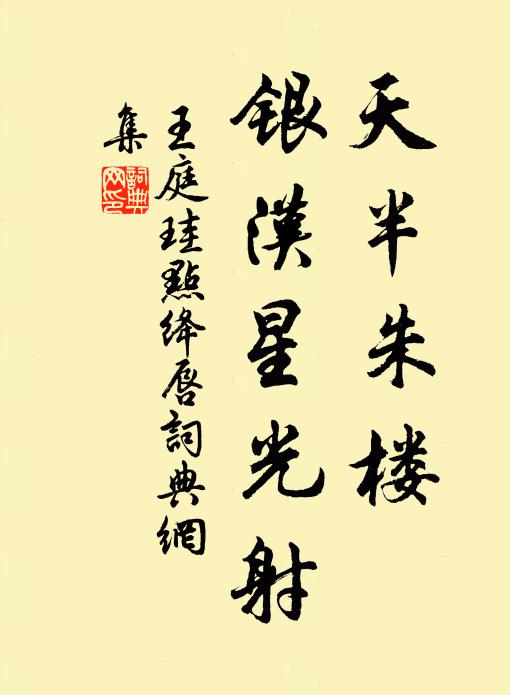 天半朱楼
銀漢星光射
王庭珪點绛唇詞典網
集
詞典網印